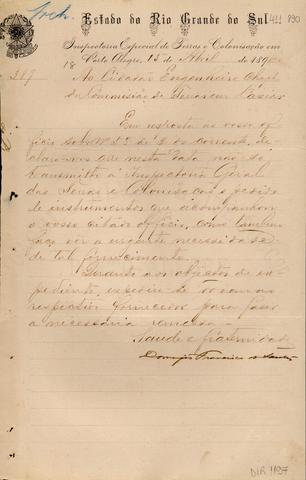 Arch.
Estado do Rio Grande do Sul
411 890
Inspectoria Especial de Terras e Colonisação em
18 Porto Alegre, 15 de Abril de 1890
387
Ao Cidadão Engenheiro Chefe
da Commissão de Terras em Caxias
Em resposta ao vosso of-
ficio sob Nº 53 de 9 do corrente, de-
claro-vos que nesta data não só
transmitto á Inspectoria Geral
das Terras e Colonisação o pedido
de instrumentos que acompanhou
o vosso citado officio, como tambem
faço ver a urgente necessidade
de tal fornecimento.
Quanto aos objectos de ex-
pediente, expedi
respectivo fornecedor para fazer
a necessaria remessa.
Saude e fraternidade
Domingos Francisco dos Santos
DIR 1197